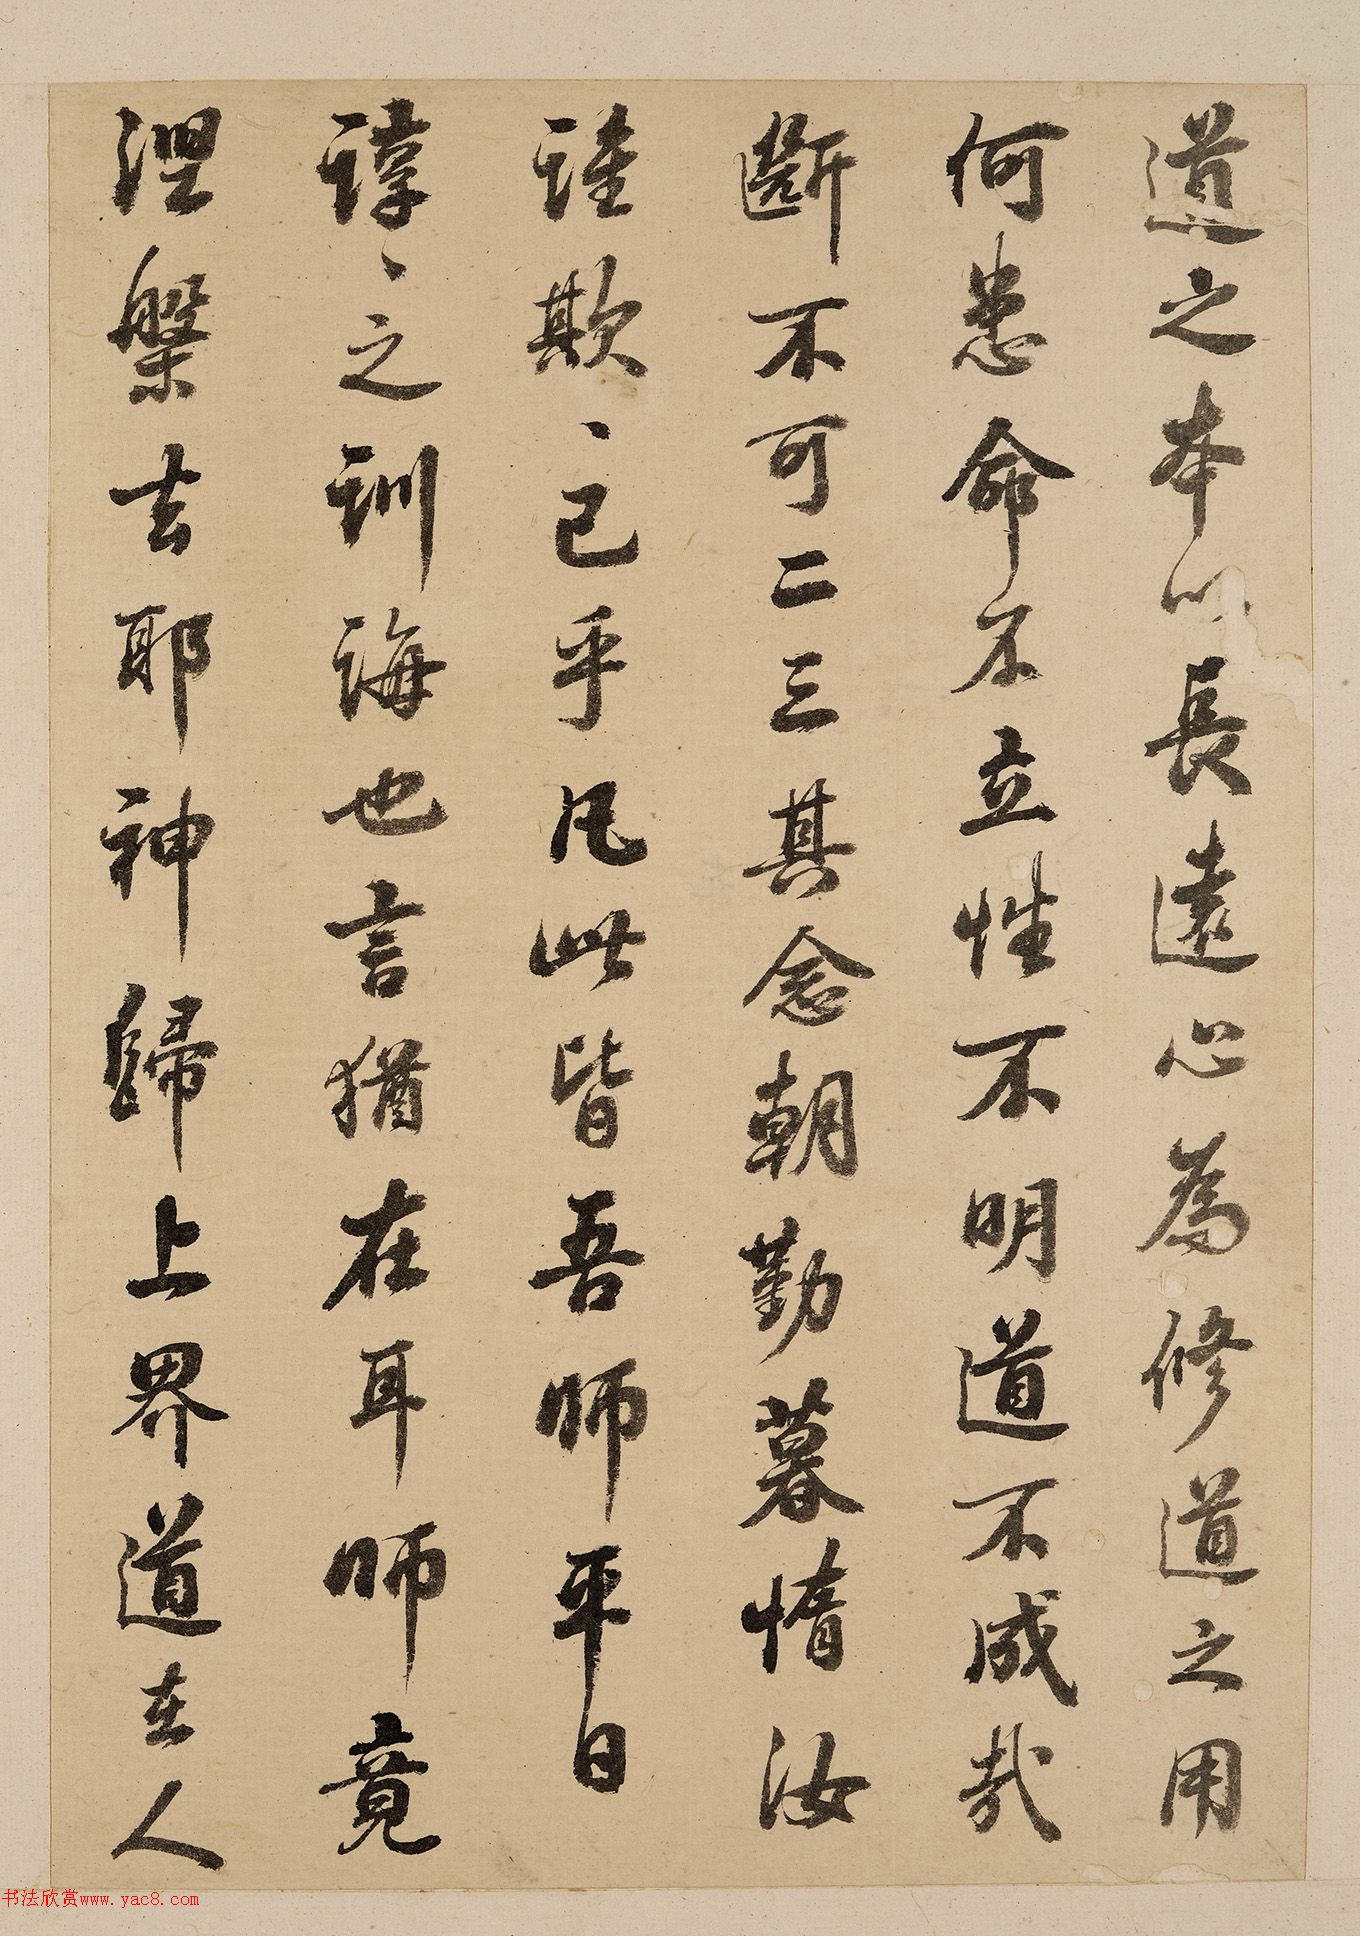 道之本以長遠心為修道之用
何患命不立性不明道不成哉
斷不可二三其念朝勤暮惰汝
誰欺欺已乎凡此皆吾師平日
諄諄之訓誨也言猶在耳師竟
涅槃去耶神歸上界道在人
书法欣赏www.yac8.com